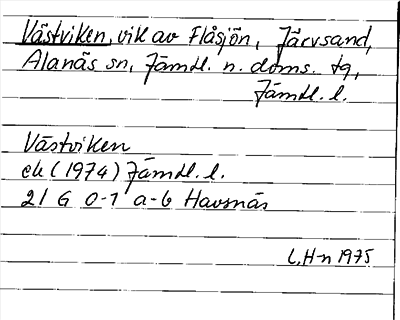 Västviken, vik av Flåsjön, Järvsand,
Alanäs sn, Jämtl. n. doms. tg,
Jämtl. l.
Västviken
ek (1974) Jämtl. l.
21 G 0-1 a-b Havsnäs
L.H-n 1975